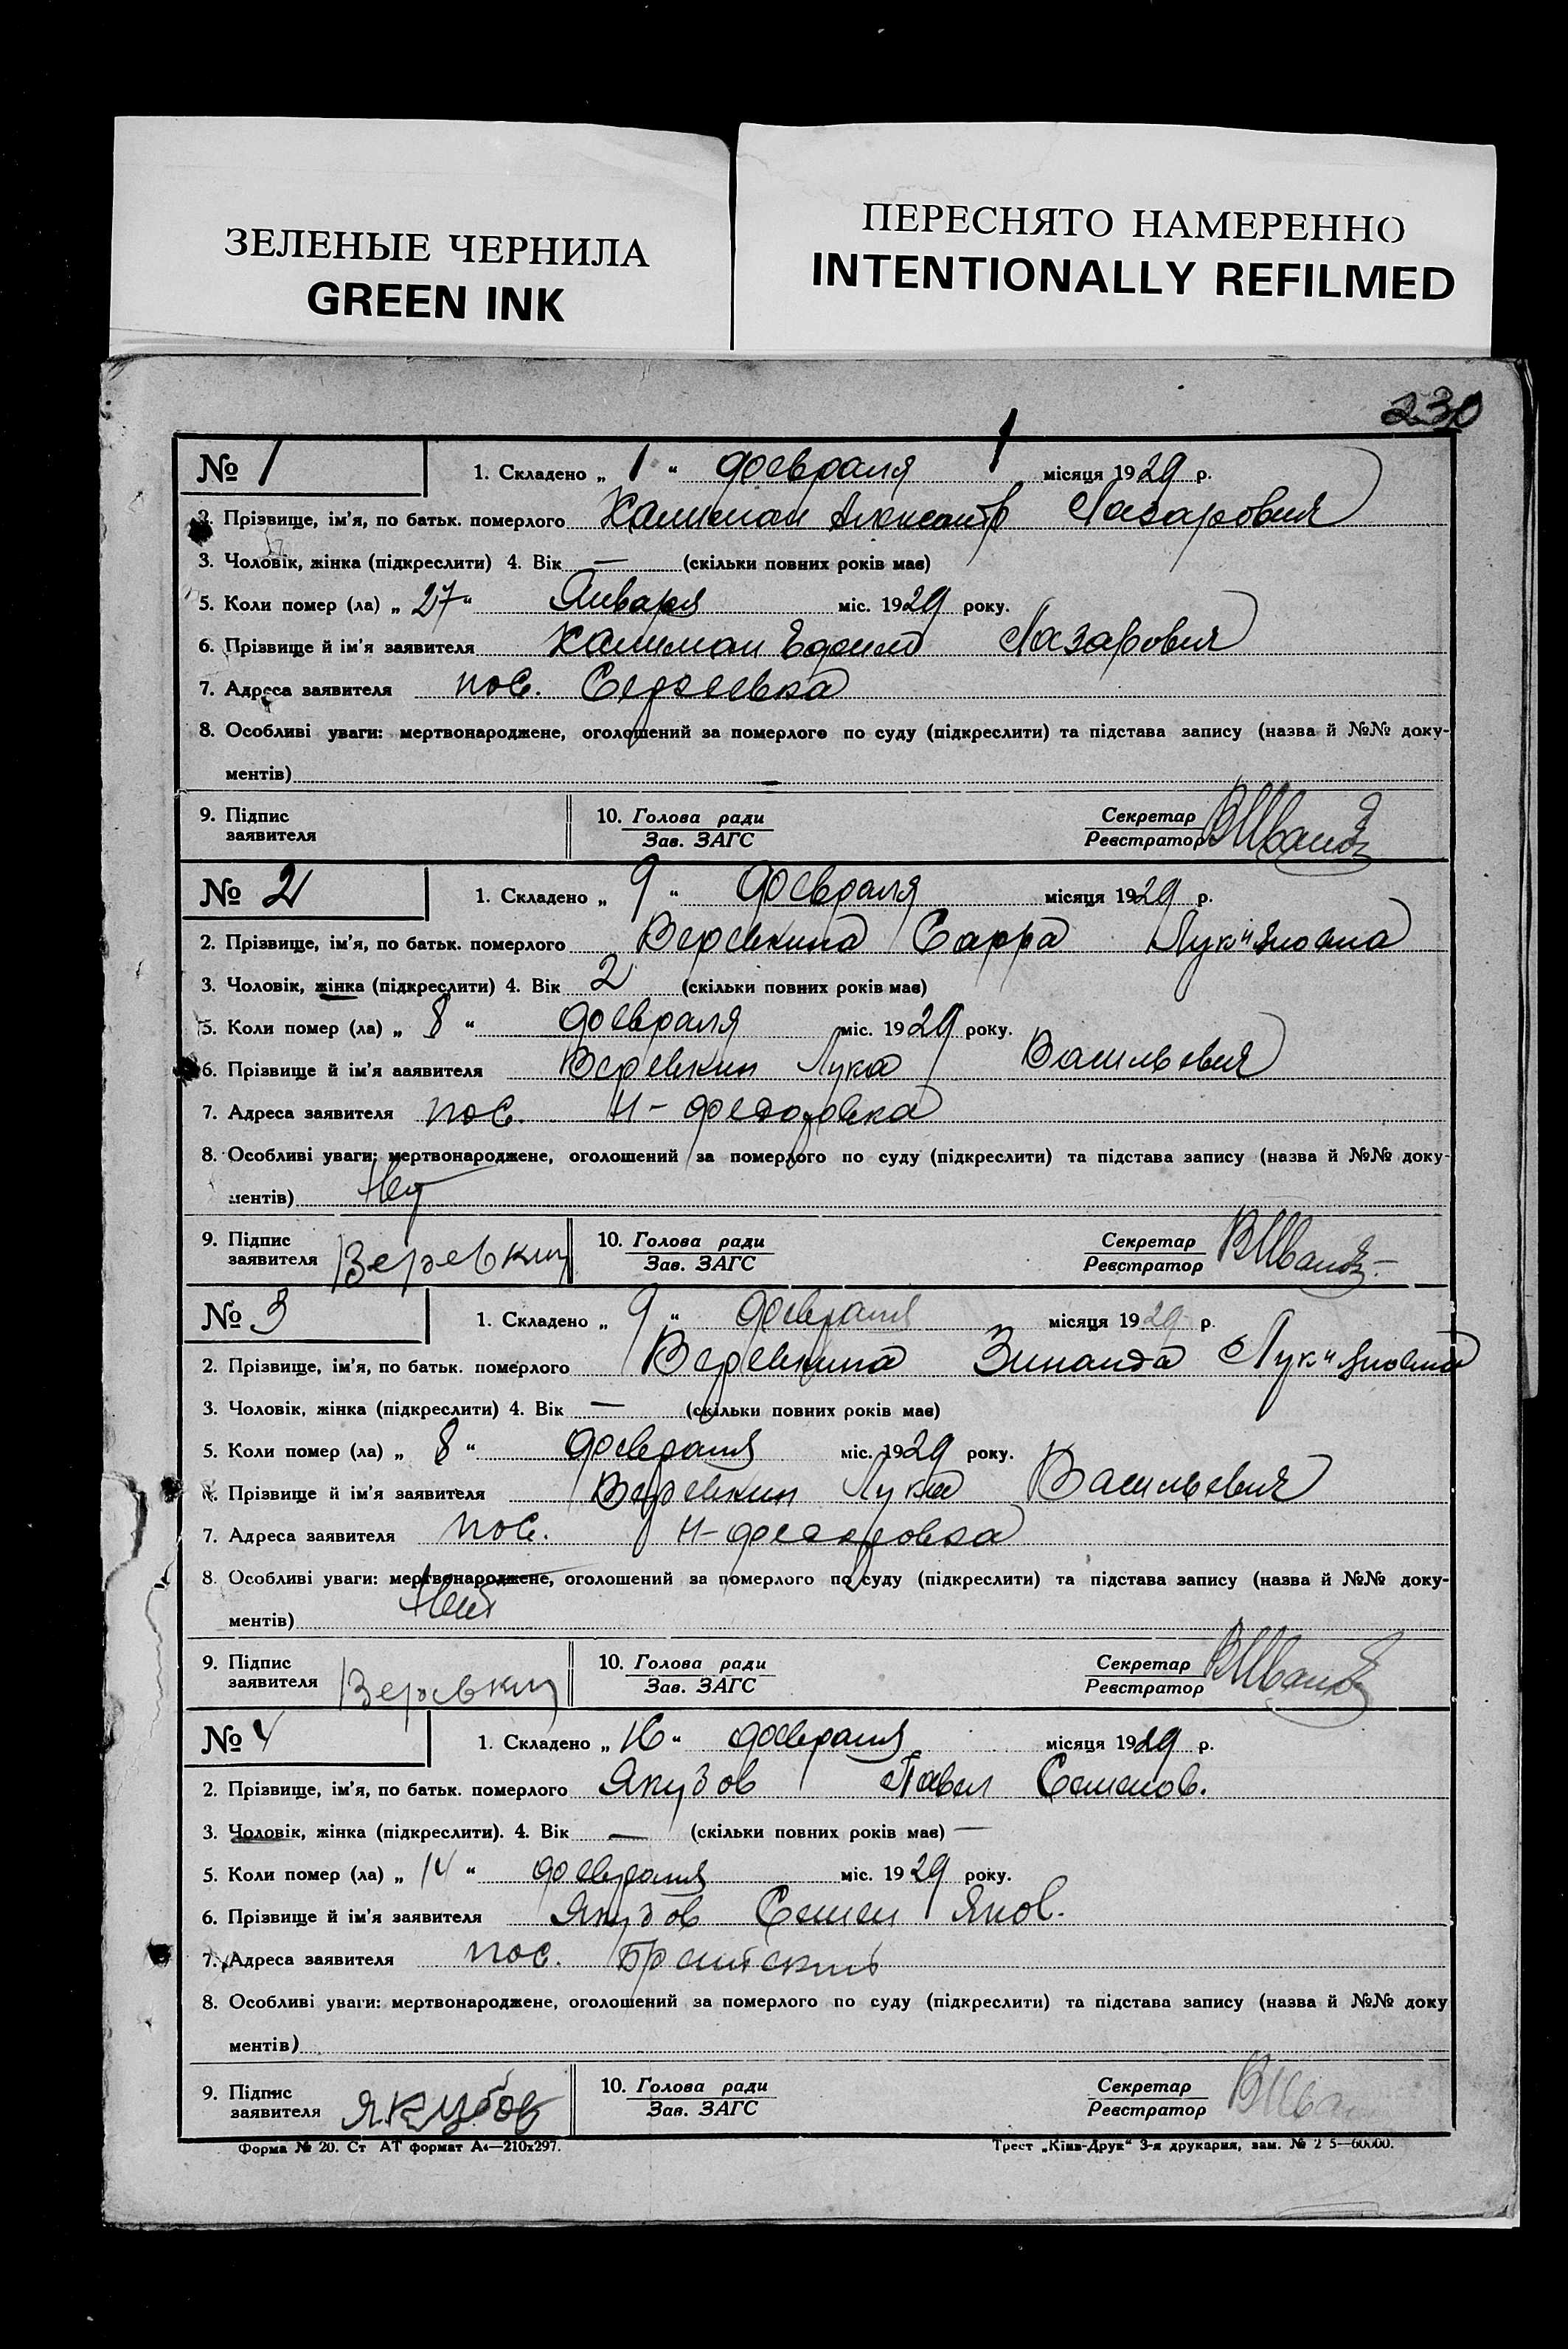 ЗЕЛЕНЫЕ ЧЕРНИЛА
GREEN INK
ПЕРЕСНЯТО НАМЕРЕННО
INTENTIONALLY REFILMED
230
№ 1 1. Складено „ 1 “ февраля місяця 1929 р.
2. Прізвище, ім’я, по батьк. померлого Калиман Александр Лазарович
3. Чоловік, жінка (підкреслити) 4. Вік — (скільки повних років має)
5. Коли помер (ла) „ 27 “ Января міс. 1929 року.
6. Прізвище й ім’я заявителя Калиман Лазарович
7. Адреса заявителя пос. Сергеевка
8. Особливі уваги: мертвонароджене, оголошений за померлого по суду (підкреслити) та підстава запису (назва й №№ доку-
ментів) —
9. Підпис заявителя 10. Голова ради Зав. ЗАГС Секретар Реєстратор
№ 2 1. Складено „ 9 “ февраля місяця 1929 р.
2. Прізвище, ім’я, по батьк. померлого Веревкина Сарра Лук"яновна
3. Чоловік, жінка (підкреслити) 4. Вік 2 (скільки повних років має)
5. Коли помер (ла) „ 8 “ февраля міс. 1929 року.
6. Прізвище й ім’я заявителя Веревкин Лука Васильевич
7. Адреса заявителя пос. Н-Федоровка
8. Особливі уваги: мертвонароджене, оголошений за померлого по суду (підкреслити) та підстава запису (назва й №№ доку-
ментів) Нет
9. Підпис заявителя Веревкин 10. Голова ради Зав. ЗАГС Секретар Реєстратор
№ 3 1. Складено „ 9 “ февраля місяця 1929 р.
2. Прізвище, ім’я, по батьк. померлого Веревкина Зинаида Лук"яновна
3. Чоловік, жінка (підкреслити) 4. Вік — (скільки повних років має)
5. Коли помер (ла) „ 8 “ февраля міс. 1929 року.
6. Прізвище й ім’я заявителя Веревкин Лука Васильевич
7. Адреса заявителя пос. Н-Федоровка
8. Особливі уваги: мертвонароджене, оголошений за померлого по суду (підкреслити) та підстава запису (назва й №№ доку-
ментів) Нет
9. Підпис заявителя Веревкин 10. Голова ради Зав. ЗАГС Секретар Реєстратор
№ 4 1. Складено „ 16 “ февраля місяця 1929 р.
2. Прізвище, ім’я, по батьк. померлого Якубов Павел Семенов.
3. Чоловік, жінка (підкреслити). 4. Вік — (скільки повних років має) —
5. Коли помер (ла) „ 14 “ февраля міс. 1929 року.
6. Прізвище й ім’я заявителя Якубов Семен Яков.
7. Адреса заявителя пос.
8. Особливі уваги: мертвонароджене, оголошений за померлого по суду (підкреслити) та підстава запису (назва й №№ доку
ментів)
9. Підпис заявителя Якубов 10. Голова ради Зав. ЗАГС Секретар Реєстратор
Форма № 20. Ст АТ формат А4—210x297. Трест „Київ-Друк“ 3-я друкарня, зам. №